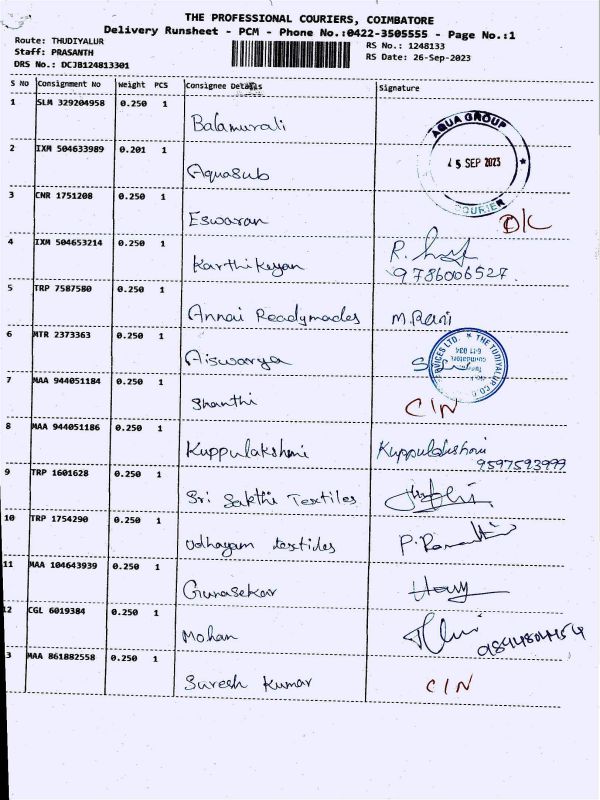 THE PROFESSIONAL COURIERS, COIMBATORE
Delivery Runsheet - PCM - Phone No.:0422-3505555 - Page No.:1
Route: THUDIYALUR
RS No.: 1248133
Staff: PRASANTH
RS Date: 26-Sep-2023
DRS No.: DCJB124813301
S No Consignment No Weight PCS Consignee Details Signature
1 SLM 329204958 0.250 1
Balamurali
AQUA GROUP
2 IXM 504633989 0.201 1
SEP 2023
Aquasub
3 CNR 1751208 0.250 1
COURIER
Eswaran
4 IXM 504653214 0.250 1
Karthikeyan
9786006527
5 TRP 7587580 0.250 1
Annai Readymades M.Rani
6 MTR 2373363 0.250 1
THE TUDIYALUR CO.
Aiswarya
7 MAA 944051184 0.250 1
Shanthi CIN
8 MAA 944051186 0.250 1
Kuppulakshmi Kuppulakshmi
9597593999
9 TRP 1601628 0.250 1
Sri Sakthi Textiles
10 TRP 1754290 0.250 1
Udhayam textiles
11 MAA 104643939 0.250 1
Gunasekar
12 CGL 6019384 0.250 1
Mohan
3 MAA 861882558 0.250 1
Suresh Kumar CIN